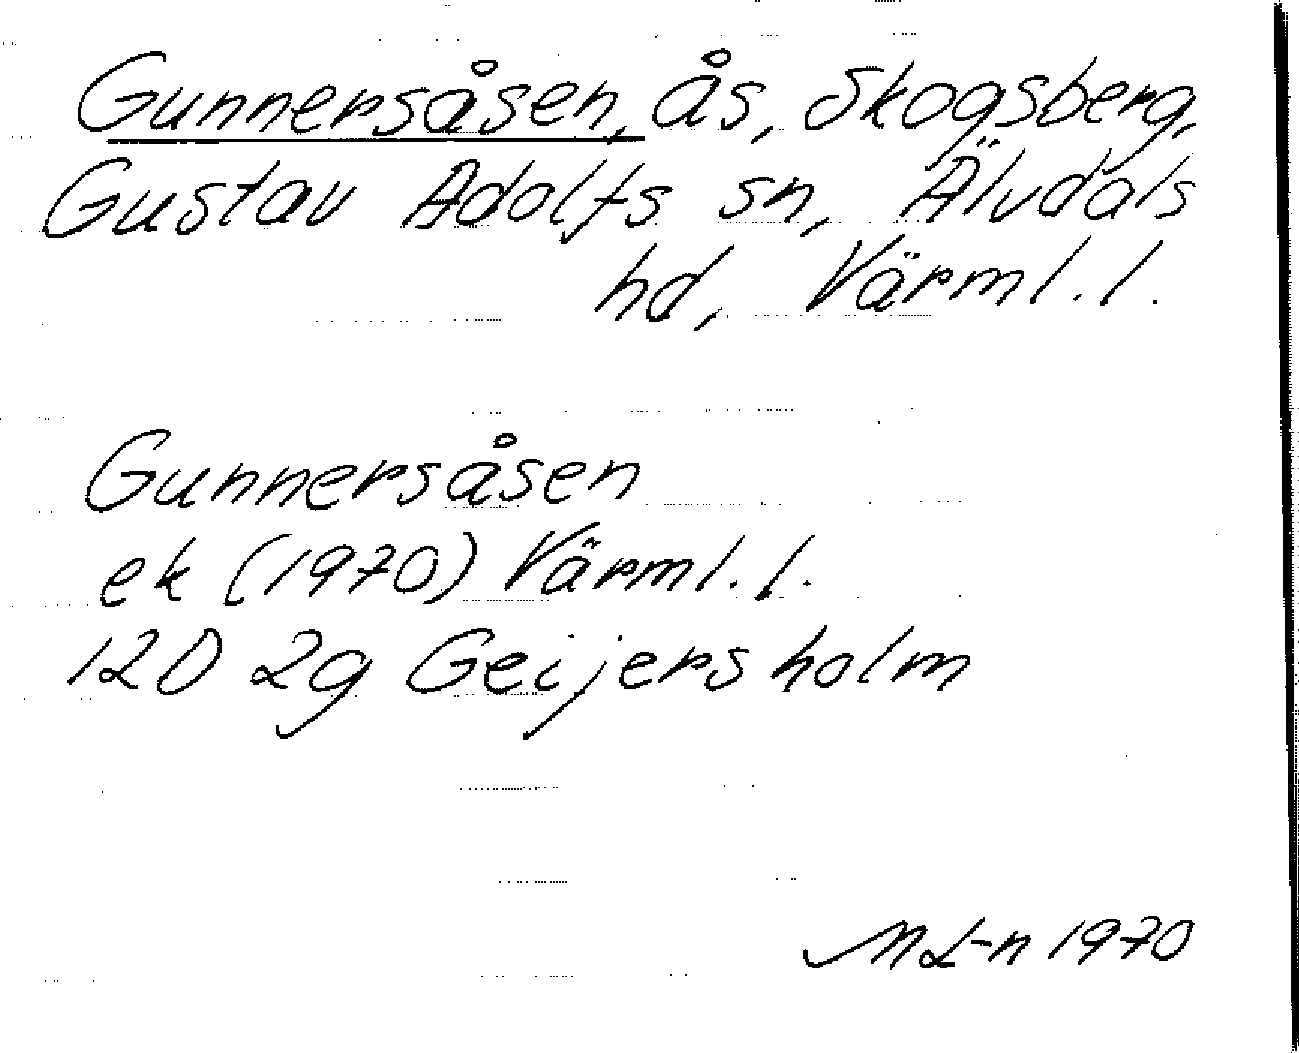 Gunnersåsen, ås, Skogsberg,
Gustav Adolfs sn, Älvdals
hd, Värml. l.
Gunnersåsen
ek (1970) Värml. l.
12D 2g Geijersholm
ML-n 1970